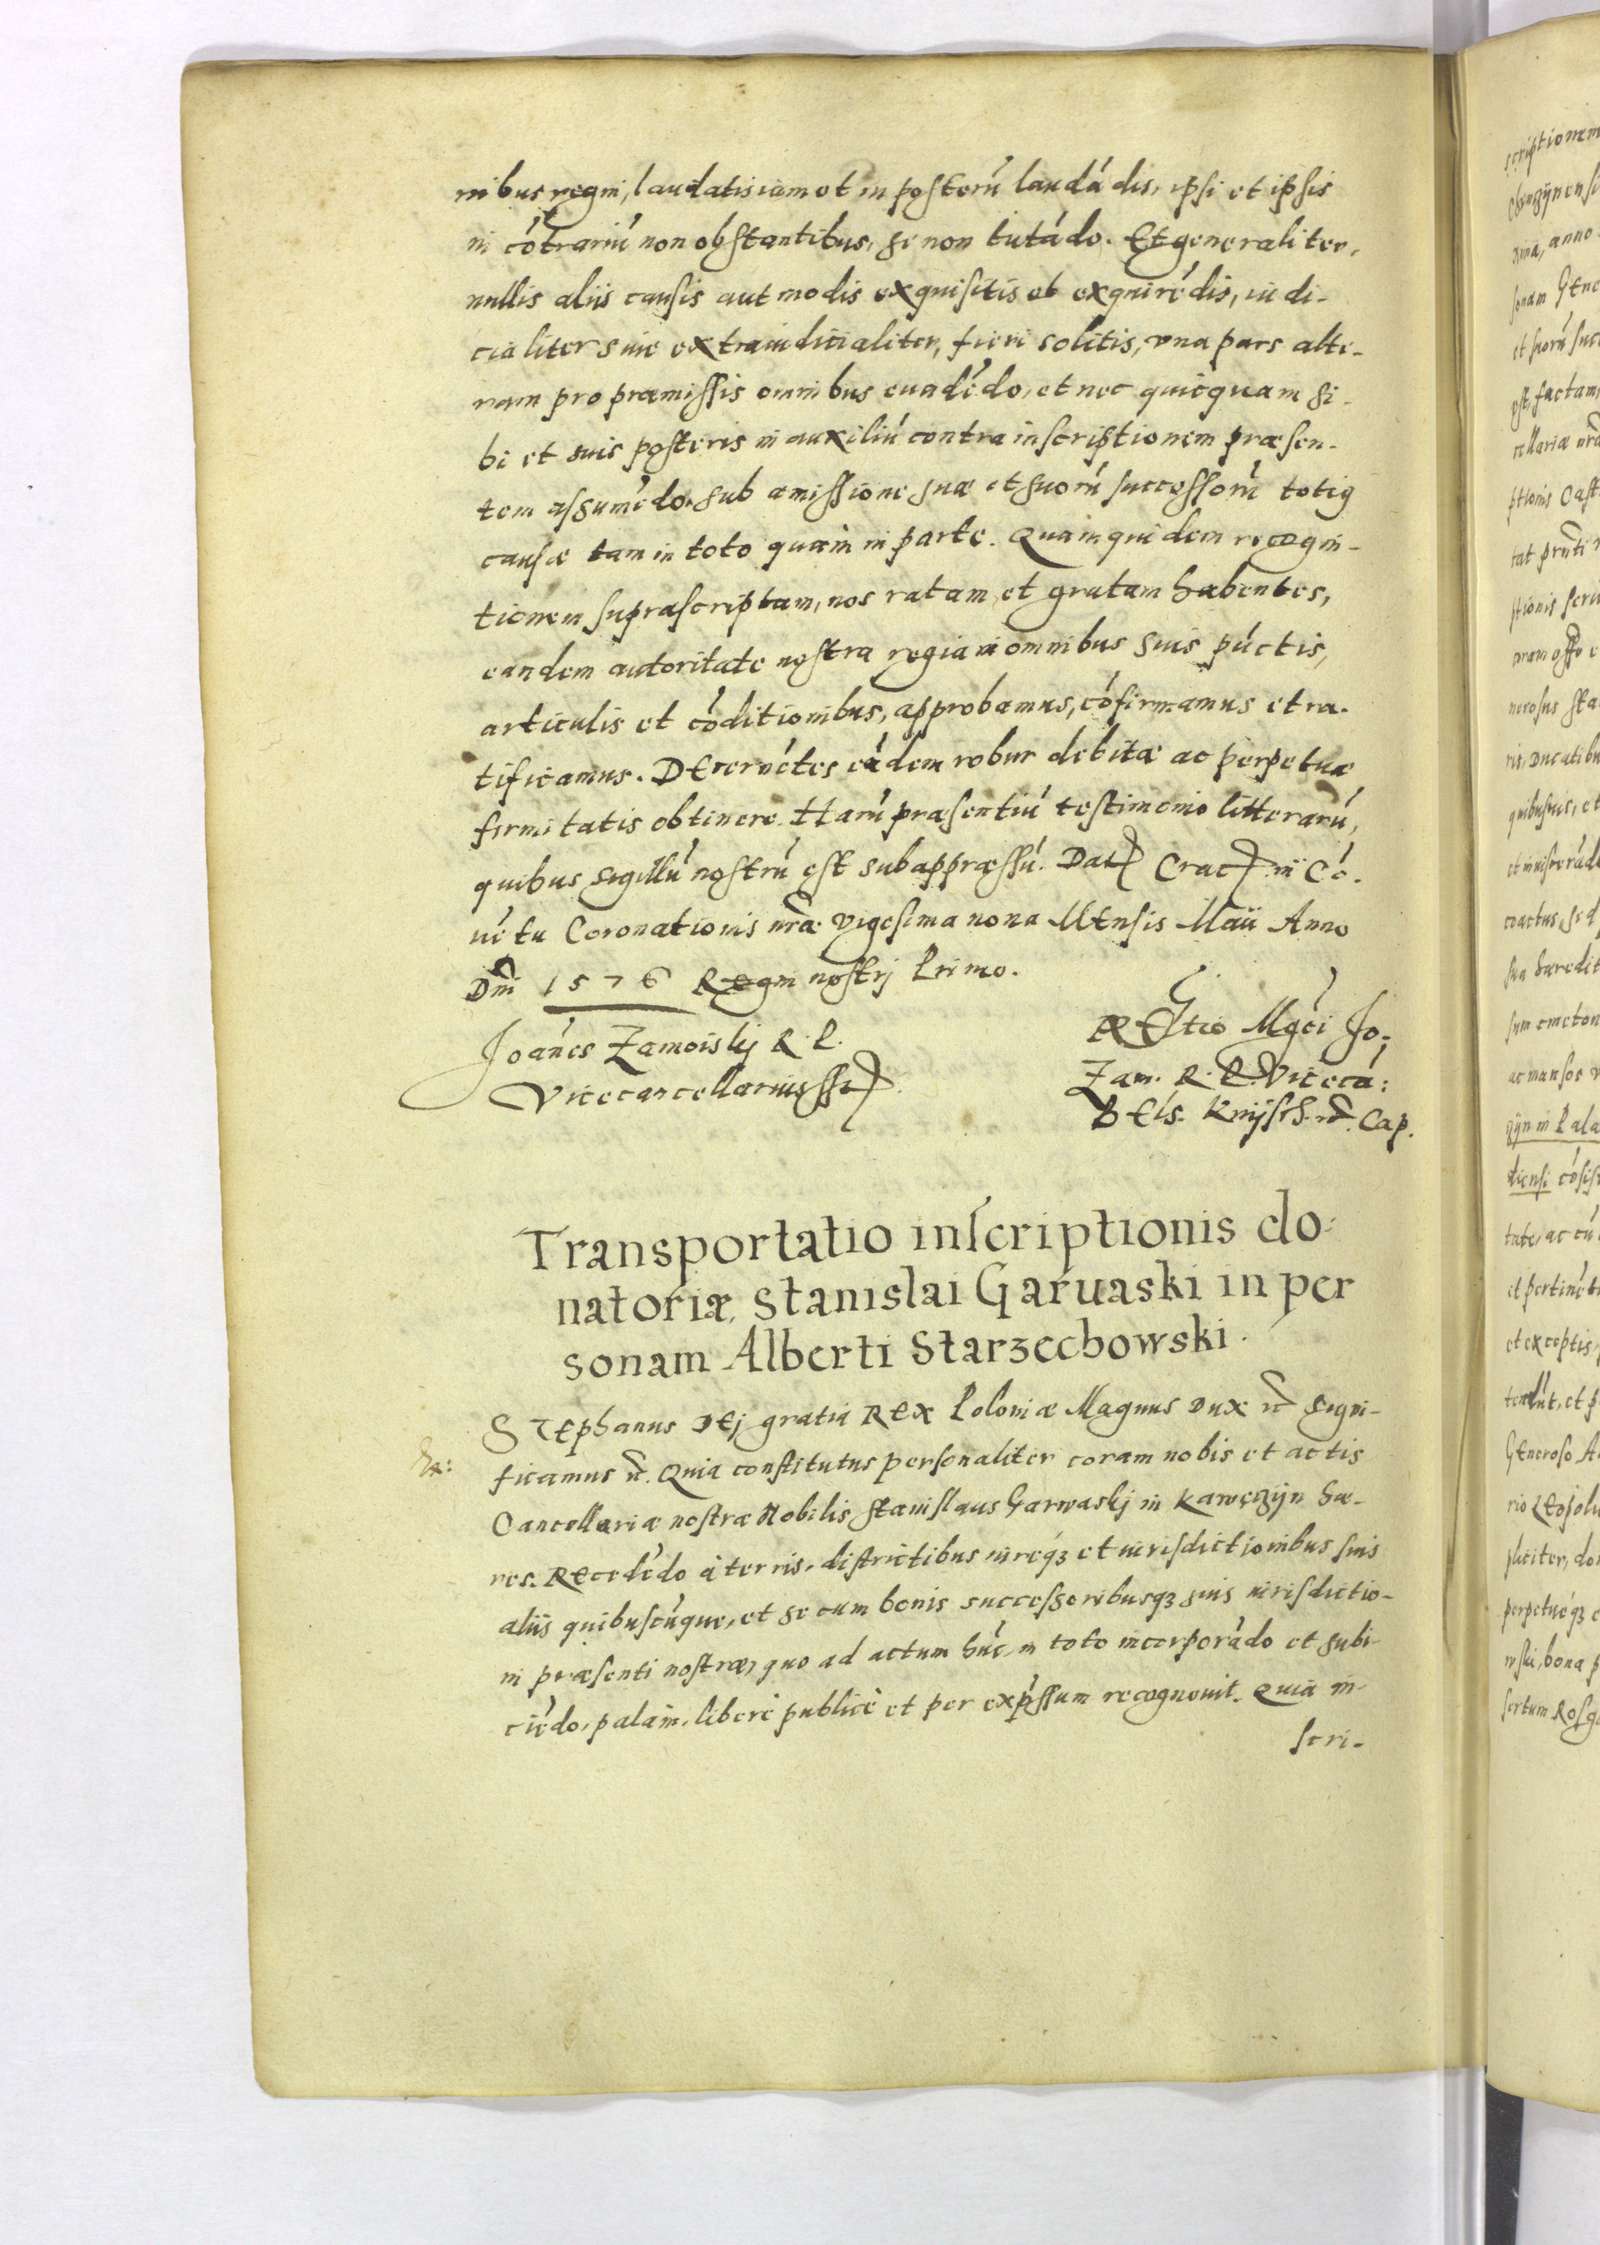 nibus regni, laudatis iam et in posterú laudá dis, ipsi et ipsis
in cótrariú non obstantibus, se non tutádo. Et generaliter,
nullis aliis causis aut modis exquisitis et exquirédis, iudi-
cialiter siue extraiudicialiter, fieri solitis, vna pars alte-
ram pro præmissis omnibus euadédo, et nec quicquam si-
bi et suis posteris in auxiliú contra inscriptionem præsen-
tem assumédo, sub amissione suæ et suorú successorú totiq
causæ tam in toto quàm in parte. Quam quidem recogni-
tionem suprascriptam, nos ratam et gratam habentes,
eandem autoritate nostra regia in omnibus suis púctis,
articulis et códitionibus, approbamus, cófirmamus et ra-
tificamus. Decernétes eádem robur debitæ ac perpetuæ
firmitatis obtinere. Harú præsentiú testimonio litterarú,
quibus sigillú nostrú est subappræssú. Dat Crac in Có-
uétu Coronationis nræ vigesima nona Mensis Maii Anno
Dni 1576 Regni nostrj Primo.
Joánes Zamoiskj R. P.
Vicecancellarius sst
Relatio Mgci Jo:
Zam. R. P. Vicecá:
Bels. Knijsch. Cap.
Transportatio inscriptionis do-
natoriæ, Stanislai Garuaski in per
sonam Alberti Starzechowski.
Stephanus Dej gratia Rex Poloniæ Magnus Dux Signi-
ficamus Quia constitutus personaliter coram nobis et actis
Cancellariæ nostræ Nobilis Stanislaus Garwaskj in Kawęczijn hæ-
res. Recedédo à terris, districtibus iureq3 et iurisdictionibus suis
aliis quibuscúque, et se cum bonis successoribusq3 suis iurisdictio-
ni præsenti nostræ, quo ad actum húc, in toto incorporádo et subi-
ciédo, palàm, liberè publicè et per expssum recognouit. Quia in-
scri-